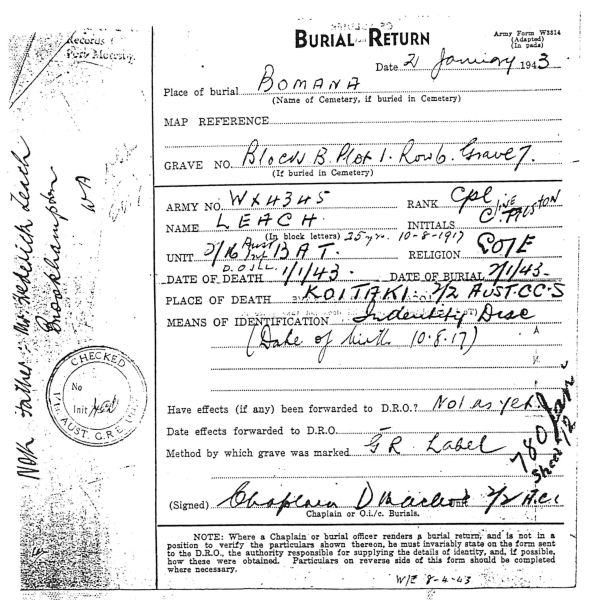 BURIAL RETURN
Army Form W3314
(Adapted)
(In pads)
Records
Port Moresby
Date 21 January 1943
Place of burial BOMANA
(Name of Cemetery, if buried in Cemetery)
MAP REFERENCE
GRAVE NO. Block B. Plot 1. Row 6. Grave 7.
(If buried in Cemetery)
ARMY NO. WX4345 RANK Cpl
NAME LEACH INITIALS C.
(In block letters) 25 yrs. 10-8-1917
UNIT 2/16 Aust Inf BAT. RELIGION C OF E
D.O.ILL.
DATE OF DEATH 1/1/43. DATE OF BURIAL 2/1/43.
PLACE OF DEATH KOITAKI. 2/2 AUST.C.C.S
MEANS OF IDENTIFICATION Indentity Disc
(Date of birth 10.8.17)
Have effects (if any) been forwarded to D.R.O.? Not as yet.
Date effects forwarded to D.R.O.
Method by which grave was marked GR Label
780 Jan
Sheet 12
(Signed) Chaplain
Chaplain or O.i./c. Burials.
NOTE: Where a Chaplain or burial officer renders a burial return, and is not in a
position to verify the particulars shown thereon, he must invariably state on the form sent
to the D.R.O., the authority responsible for supplying the details of identity, and, if possible,
how these were obtained. Particulars on reverse side of this form should be completed
where necessary.
W/E 8-4-43
NOK Father: Mr Frederick Leach
Brookhampton
WA
CHECKED
No
Init
AUST. G.R.E.